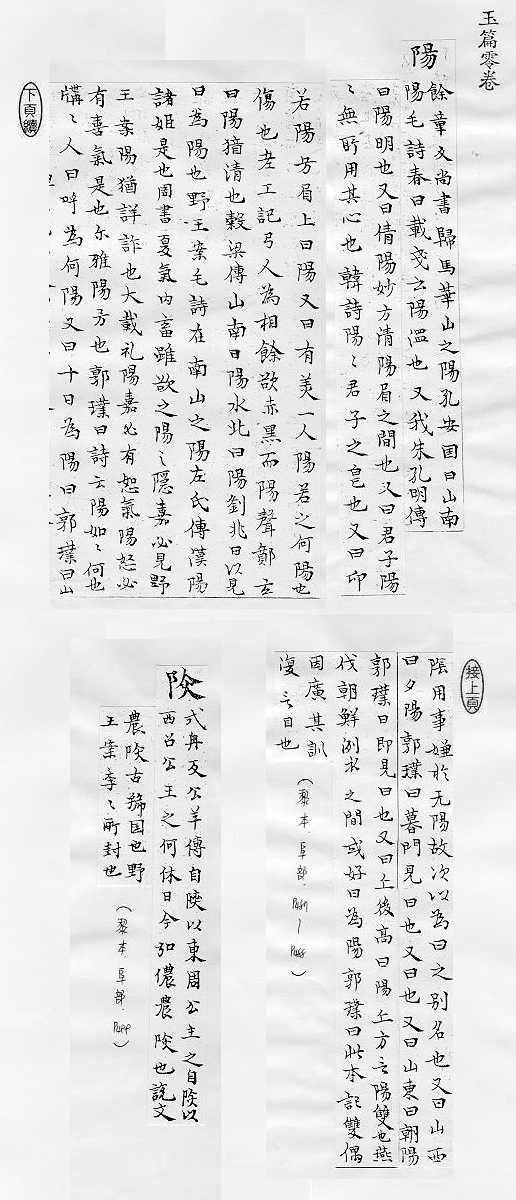 玉篇零卷
陽
餘章反尚書歸馬華山之陽孔安国曰山南
陽毛詩春日載戔云陽溫也又我朱孔明傳
曰陽明也又曰倩陽妙方清陽眉之間也又曰君子陽
〻無所用其心也韓詩陽〻君子之皃也又曰卬
若陽眉上曰陽又曰有美一人陽若之何陽也
傷也考工記弓人為相餘欲赤黑而陽聲鄭玄
曰陽猶清也穀梁傳山南曰陽水北曰陽劉兆曰以見
日為陽也野王案毛詩在南山之陽左氏傳漢陽
諸姬是也周書夏氣内畜雖欲之陽〻隱嘉必見野
王案陽猶詳詐也大戴礼陽嘉必有恕氣陽怒必
有喜氣是也尔雅陽予也郭璞曰詩云陽如〻何也
〻人曰呼為何陽又曰十日為陽曰郭璞曰山
下頁續
接上頁
陰用事嫌於无陽故次以為曰之別名也又曰山西
曰夕陽郭璞曰暮門見日也又曰也又曰山東曰朝陽
郭璞曰即見日也又曰丘後高曰陽丘方言陽雙也燕
伐朝鮮洌水之間或好曰為陽郭璞曰此本記雙偶
因廣其訓
復言目也
(黎本 阜部)
陝
式冉反公羊傳自陝以東周公主之自陝以
西召公主之何休曰今弘儂農陝也說文
農陝古虢国也野
王案季〻所封也
(黎本 阜部)